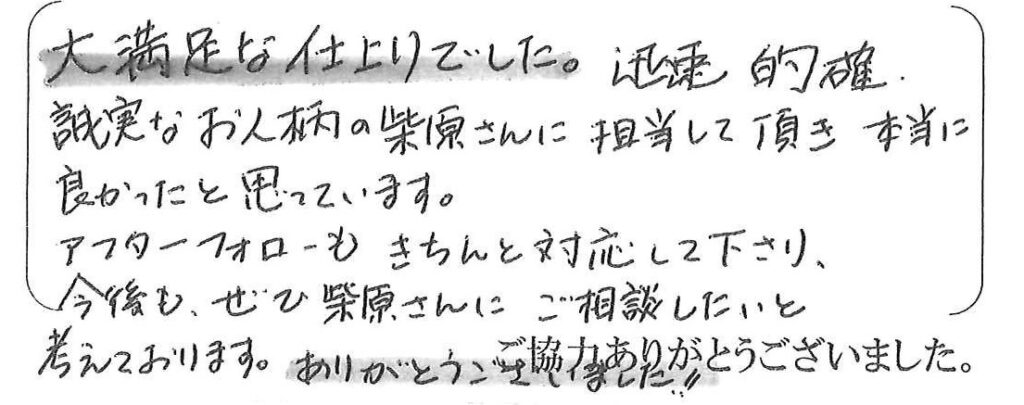 大満足な仕上りでした。迅速 的確.
誠実なお人柄の柴原さんに 担当して頂き 本当に
良かったと思っています。
アフターフォローも きちんと対応して下さり、
今後も、ぜひ柴原さんに ご相談したいと
考えております。ありがとうございました!!
ご協力ありがとうございました。